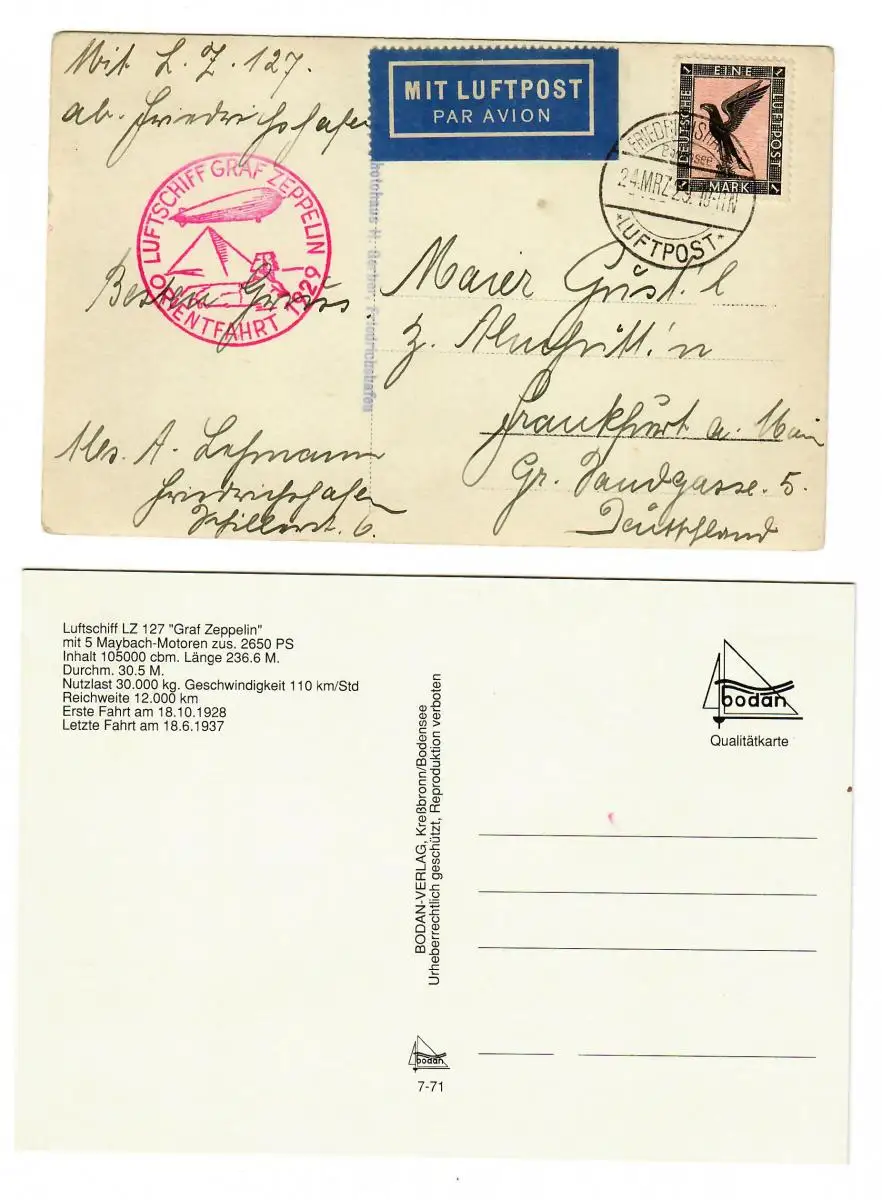 Mit L. Z. 127.
ab. Friedrichshafen
MIT LUFTPOST
PAR AVION
EINE
DEUTSCHE
LUFTPOST
1 MARK 1
FRIEDRICHSHAFEN
Bodensee
24.MRZ 29. 10-11 N
*LUFTPOST*
LUFTSCHIFF GRAF ZEPPELIN
ORIENTFAHRT 1929
Besten Gruss.
Photohaus Friedrichshafen
Maier Gust'l
z.
Frankfurt a. Main
Gr. Sandgasse. 5.
Deutschland
A. Lehmann
Friedrichshafen
Schillerst. 6.
Luftschiff LZ 127 "Graf Zeppelin"
mit 5 Maybach-Motoren zus. 2650 PS
Inhalt 105000 cbm. Länge 236.6 M.
Durchm. 30.5 M.
Nutzlast 30.000 kg. Geschwindigkeit 110 km/Std
Reichweite 12.000 km
Erste Fahrt am 18.10.1928
Letzte Fahrt am 18.6.1937
BODAN-VERLAG, Kreßbronn/Bodensee
Urheberrechtlich geschützt, Reproduktion verboten
bodan
Qualitätkarte
bodan
7-71